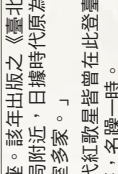 座。該年出版之《臺北
局附近，日據時代原為
室多家。」
代紅歌星皆曾在此登臺
，名躁一時。